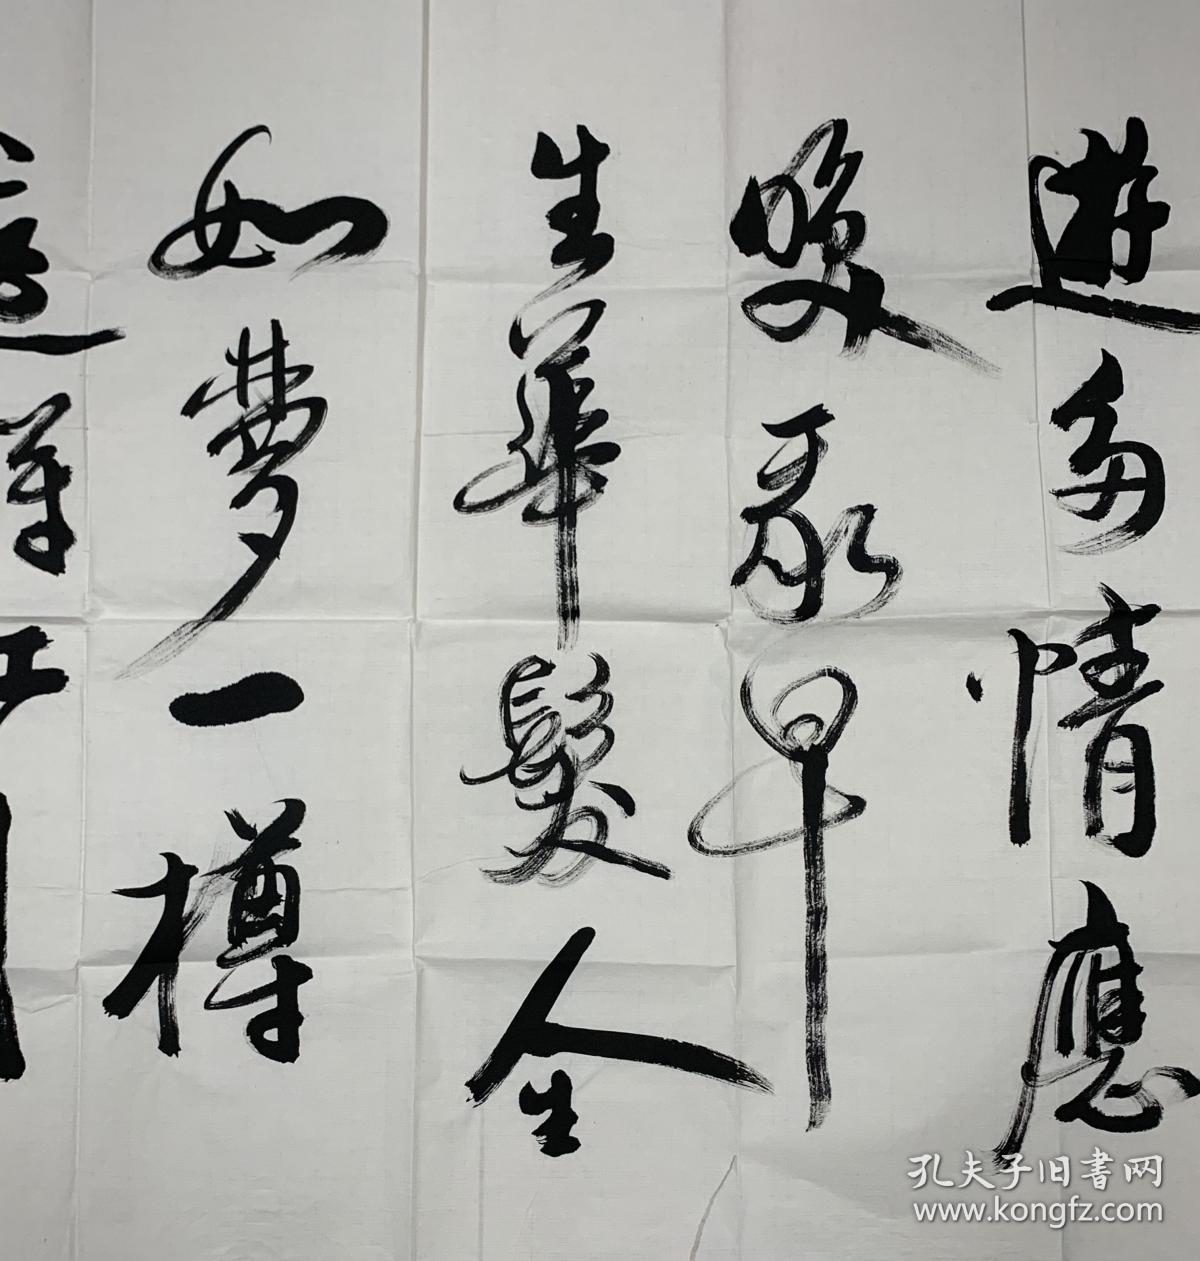 遊多情應
咲我早
生華髮人生
如夢一樽
孔夫子旧書网
www.kongfz.com